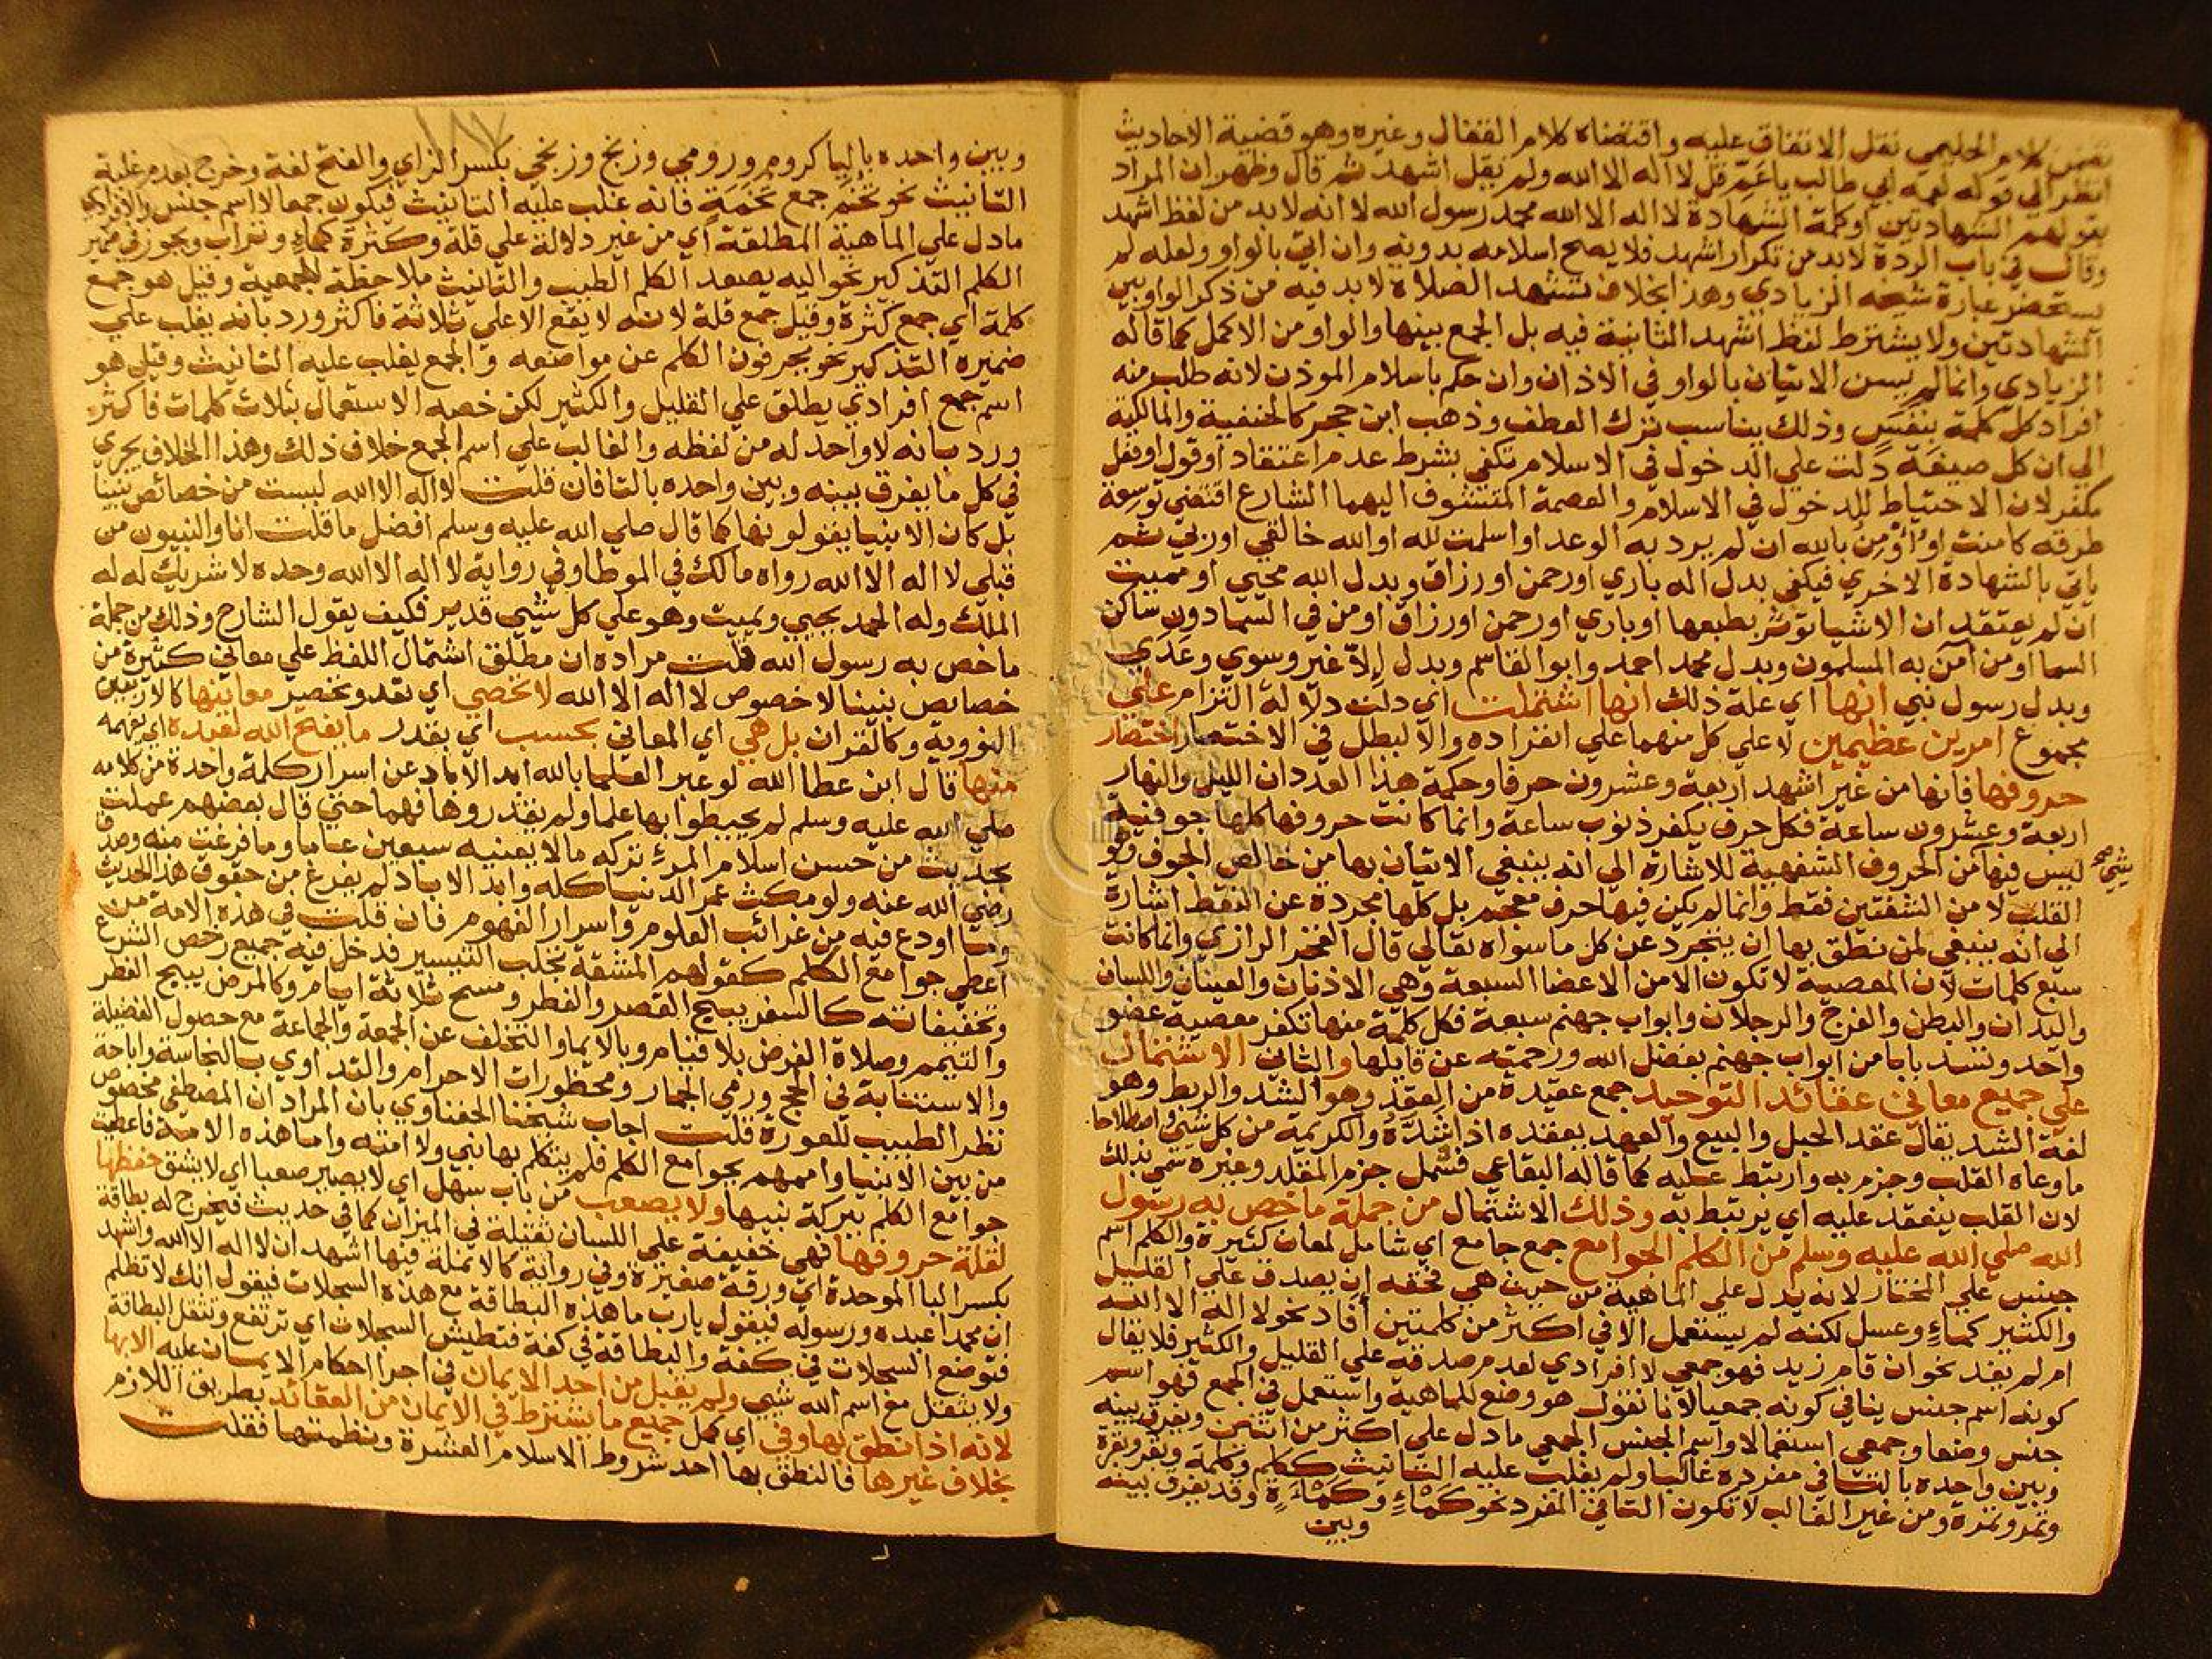 كلام الحليمي نقل الاتفاق عليه واقتضاه كلام القفال وغيره وهو قضية الاحاديث
انظر الي قوله لعمه ابي طالب يا عم قل لا اله الا الله ولم يقل اشهد ثم قال وظهر ان المراد
بقولهم الشهادتين او كلمة الشهادة لا اله الا الله محمد رسول الله لا انه لا بد من لفظ اشهد
وقال في باب الردة لا بد من تكرار اشهد فلا يصح اسلامه بدونه وان اتي بالواو ولعله لم
يستحضر عبارة شيخه الزيادي وهذا بخلاف تشهد الصلاة لا بد فيه من ذكر الواو بين
الشهادتين ولا يشترط لفظ اشهد الثانية فيه بل الجمع بينها والواو من الاكمل كما قاله
الزيادي وانما لم يسن الاتيان بالواو في الاذان وان حكم باسلام الموذن لانه طلب منه
افراد كل كلمة بنفس وذلك يناسب ترك العطف وذهب ابن حجر كالحنفية والمالكية
الي ان كل صيغة دلت علي الدخول في الاسلام تكفي بشرط عدم اعتقاد او قول او فعل
مكفر لان الاحتياط للدخول في الاسلام والعصمة المتشوف اليهما الشارع اقتضي توسعة
طرقه كامنت او اومن بالله ان لم يرد به الوعد او اسلمت لله او الله خالقي او ربي ثم
ياتي بالشهادة الاخري فيكفي بدل اله باري او رحمن او رزاق وبدل الله محيي او مميت
ان لم يعتقد ان الاشيا توثر بطبعها او باري او رحمن او رزاق او من في السما دون ساكن
السما او من امن به المسلمون وبدل محمد احمد وابو القاسم وبدل الا غير وسوي وعدي
وبدل رسول نبي انها اي علة ذلك انها اشتملت اي دلت دلالة التزام علي
مجموع امرين عظيمين لا علي كل منهما علي انفراده والا لبطل في الاختصار اختصار
حروفها فانها من غير اشهد اربعة وعشرون حرفا وحكمة هذا العدد ان الليل والنهار
اربعة وعشرون ساعة فكل حرف يكفر ذنوب ساعة وانما كانت حروفها كلها جوفية
ليس فيها من الحروف الشفهية للاشارة الي انه ينبغي الاتيان بها من خالص الجوف وهو
شيء صح
القلب لا من الشفتين فقط وانما لم يكن فيها حرف معجم بل كلها مجردة عن النقط اشارة
الي انه ينبغي لمن نطق بها ان يتجرد عن كل ما سواه تعالي قال الفخر الرازي وانما كانت
سبع كلمات لان المعصية لا تكون الا من الاعضا السبعة وهي الاذنان والعينان واللسان
واليدان والبطن والفرج والرجلان وابواب جهنم سبعة فكل كلمة منها تكفر معصية عضو
واحد وتسد بابا من ابواب جهنم بفضل الله ورحمته عن قايلها والثان الاشتمال
علي جميع معاني عقائد التوحيد جمع عقيدة من العقد وهو الشد والربط وهو
لغة الشد يقال عقد الحبل والبيع والعهد يعقده اذا شده والكريمة من كل شي واصطلاحا
ما وعاه القلب وجزم به وارتبط عليه كما قاله البقاعي فشمل جزم المقلد وغيره سمي بذلك
لان القلب ينعقد عليه اي يرتبط به وذلك الاشتمال من جملة ما خص به رسول
الله صلي الله عليه وسلم من الكلم الجوامع جمع جامع اي شامل لمعان كثيرة والكلم اسم
جنس علي المختار لانه يدل علي الماهية من حيث هي فحقه ان يصدق علي القليل
والكثير كماء وعسل لكنه لم يستعمل الا في اكثر من كلمتين افاد نحو لا اله الا الله
ام لم يفد نحو ان قام زيد فهو جمعي لا افرادي لعدم صدقه علي القليل والكثير فلا يقال
كونه اسم جنس ينافي كونه جمعيا لانا نقول هو وضع للماهية واستعمل في الجمع فهو اسم
جنس وضعا وجمعي استعمالا واسم الجنس الجمعي ما دل علي اكثر من اثنين ويفرق بينه
وبين واحده بالتا في مفرده غالبا ولم يغلب عليه التانيث ككلم وكلمة وبقر وبقرة
وتمر وتمرة ومن غير الغالب لا تكون التا في المفرد نحو كمء وكمأة وقد يفرق بينه
وبين
وبين واحده باليا كروم ورومي وزنج وزنجي بكسر الزاي والفتح لغة وخرج بعدم غلبة
التانيث نحو تخم جمع تخمة فانه غلب عليه التانيث فيكون جمعا لا اسم جنس والافرادي
ما دل علي الماهية المطلقة اي من غير دلالة علي قلة وكثرة كماء وتراب ويجوز في ضمير
الكلم التذكير نحو اليه يصعد الكلم الطيب والتانيث ملاحظة للجمعية وقيل هو جمع
كلمة اي جمع كثرة وقيل جمع قلة لانه لا يقع الا علي ثلاثة فاكثر ورد بانه يغلب علي
ضميره التذكير نحو يحرفون الكلم عن مواضعه والجمع يغلب عليه التانيث وقيل هو
اسم جمع افرادي يطلق علي القليل والكثير لكن خصه الاستعمال بثلاث كلمات فاكثر
ورد بانه لا واحد له من لفظه والغالب علي اسم الجمع خلاف ذلك وهذا الخلاف يجري
في كل ما يفرق بينه وبين واحده بالتا فان قلت لا اله الا الله ليست من خصائص نبينا
بل كان الانبيا يقولونها كما قال صلي الله عليه وسلم افضل ما قلت انا والنبيون من
قبلي لا اله الا الله رواه مالك في الموطا وفي رواية لا اله الا الله وحده لا شريك له له
الملك وله الحمد يحيي ويميت وهو علي كل شي قدير فكيف يقول الشارح وذلك من جملة
ما خص به رسول الله قلت مراده ان مطلق اشتمال اللفظ علي معاني كثيرة من
خصايص نبينا لا خصوص لا اله الا الله لا تحصي اي تعد وتحصر معانيها كالاربعين
النووية وكالقران بل هي اي المعاني بحسب اي بقدر ما يفتح الله لعبده اي يفهمه
منها قال ابن عطا الله لو عبر العلما بالله ابد الاباد عن اسرار كلمة واحدة من كلامه
صلي الله عليه وسلم لم يحيطوا بها علما ولم يقدروها فهما حتي قال بعضهم عملت
بحديث من حسن اسلام المرء تركه ما لا يعنيه سبعين عاما وما فرغت منه وصدق
رضي الله عنه ولو مكث عمر الدنيا كله وابد الاباد لم يفرغ من حقوق هذا الحديث
وما اودع فيه من غرائب العلوم واسرار الفهوم فان قلت في هذه الامة من
اعطي جوامع الكلم كقولهم المشقة تجلب التيسير فدخل فيه جميع رخص الشرع
وتخفيفاته كالسفر يبيح القصر والفطر ومسح ثلاثة ايام وكالمرض يبيح الفطر
والتيمم وصلاة الفرض بلا قيام وبالايما والتخلف عن الجمعة والجماعة مع حصول الفضيلة
والاستنابة في الحج ورمي الجمار ومحظورات الاحرام والتداوي بالنجاسة واباحة
نظر الطبيب للعورة قلت اجاب شيخنا الحفناوي بان المراد ان المصطفي مخصوص
من بين الانبيا واممهم بجوامع الكلم فلم يتكلم بها نبي ولا امته واما هذه الامة فاعطيت
جوامع الكلم ببركة نبيها ولا يصعب من باب سهل اي لا يصير صعبا اي لا يشق حفظها
لقلة حروفها فهي خفيفة علي اللسان ثقيلة في الميزان كما في حديث فيخرج له بطاقة
بكسر البا الموحدة اي ورقة صغيرة وفي رواية كالانملة فيها اشهد ان لا اله الا الله واشهد
ان محمدا عبده ورسوله فيقول يا رب ما هذه البطاقة مع هذه السجلات فيقول انك لا تظلم
فتوضع السجلات في كفة والبطاقة في كفة فتطيش السجلات اي ترتفع وتثقل البطاقة
ولا يثقل مع اسم الله شيي ولم يقبل من احد الايمان في اجرا احكام الايمان عليه الا بها
لانه اذا نطق بها وفي اي كمل جميع ما يشترط في الايمان من العقائد بطريق اللازم
بخلاف غيرها فالنطق بها احد شروط الاسلام العشرة ونظمتها فقلت